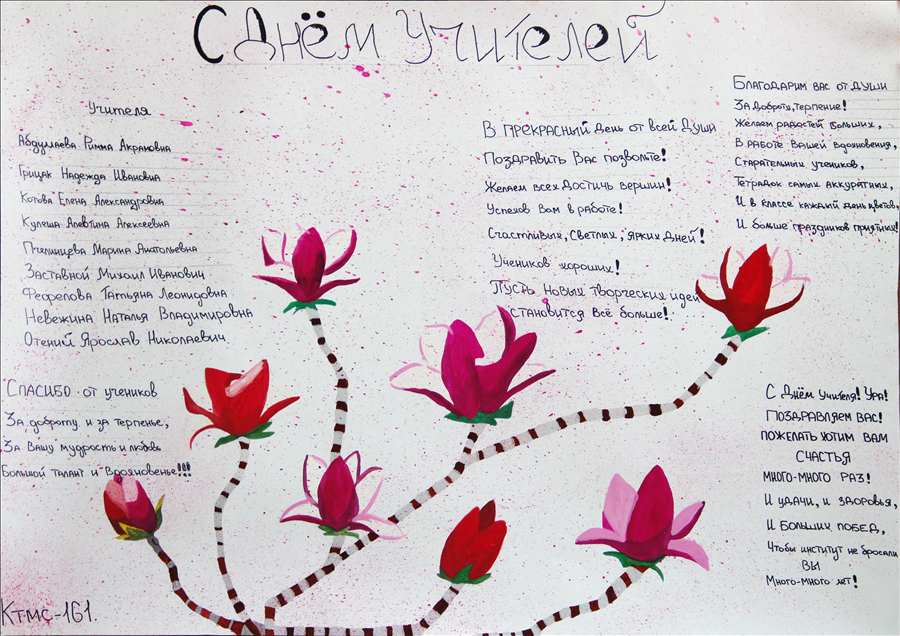 С Днём Учителей
Учителя
Абдулаева Римма Акрамовна
Грицак Надежда Ивановна
Котова Елена Александровна
Кулеша Алевтина Алексеевна
Пчелинцева Марина Анатольевна
Заставной Михаил Иванович
Фефелова Татьяна Леонидовна
Невежина Наталья Владимировна
Отений Ярослав Николаевич
Спасибо от учеников
За доброту и за терпенье,
За Вашу мудрость и любовь
Большой талант и Вдохновенье!!!
Ктмс-161.
В прекрасный день от всей Души
Поздравить Вас позвольте!
Желаем всех Достичь вершин!
Успехов Вам в работе!
Счастливых, Светлых, Ярких Дней!
Учеников хороших!
Пусть новых творческих идей
становится Всё больше!
Благодарим вас от души
За Доброту, терпение!
Желаем радостей больших,
В работе Вашей вдохновения,
Старательных учеников,
Тетрадок самых аккуратных,
И в классе каждый день цветов,
И больше праздников приятных!
С Днём Учителя! Ура!
Поздравляем Вас!
Пожелать хотим Вам
Счастья
Много-много раз!
И удачи, и здоровья,
И больших побед,
Чтобы институт не бросали
Вы
Много-много лет!